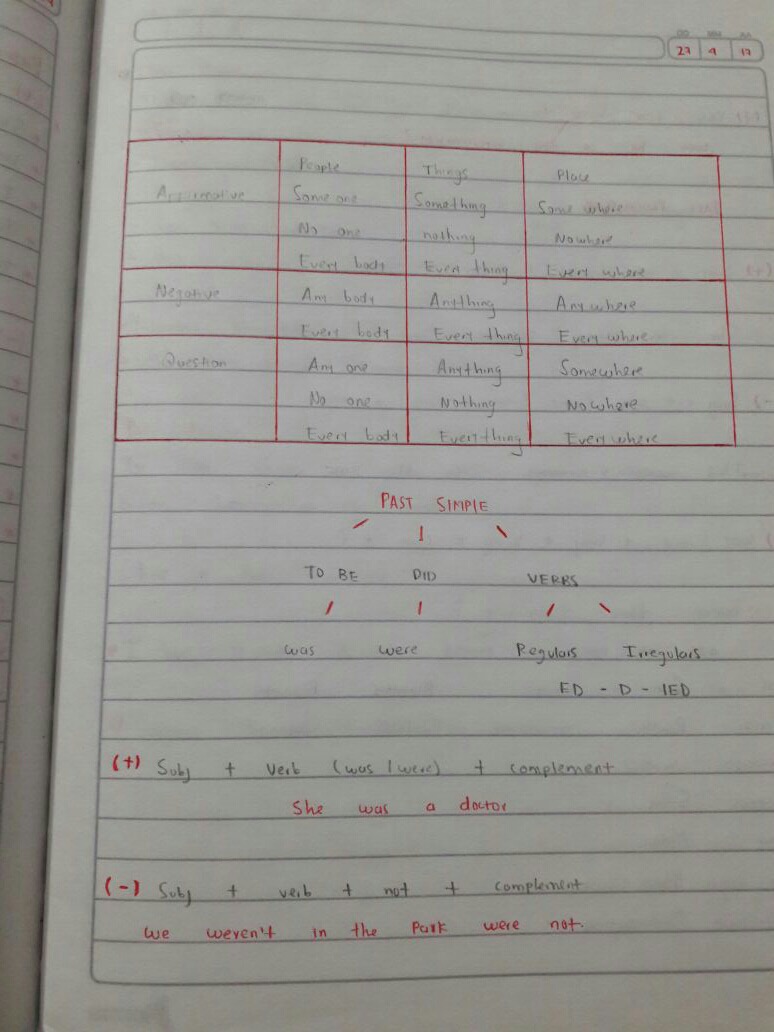 DD MM AA
27 9 17
People Things Place
Affirmative Some one Something Some where
No one nothing Nowhere
Every body Every thing Every where
Negative Any body Anything Any where
Every body Every thing Every where
Question Any one Anything Somewhere
No one Nothing Nowhere
Every body Everything Every where
PAST SIMPLE
TO BE DID VERBS
was were Regulars Irregulars
ED - D - IED
(+) Subj + Verb (was / were) + complement
She was a doctor
(-) Subj + verb + not + complement
We weren't in the Park were not.